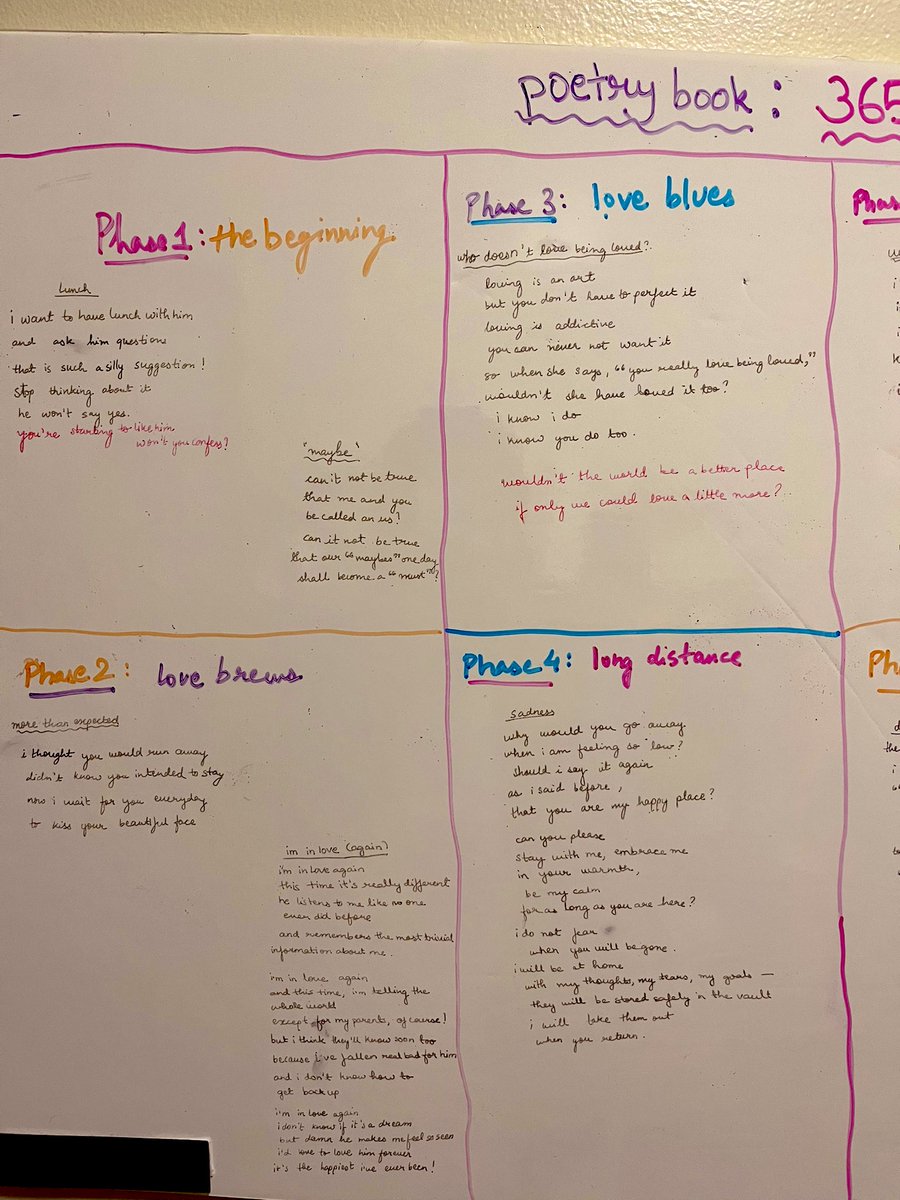 poetry book : 365
Phase 1 : the beginning
Lunch
i want to have lunch with him
and ask him questions
that is such a silly suggestion!
stop thinking about it
he won't say yes.
you're starting to like him
won't you confess?
"maybe"
can it not be true
that me and you
be called an us?
can it not be true
that our "maybes" one day
shall become a "must"?
Phase 2 : love brews
more than expected
i thought you would run away
didn't know you intended to stay
now i wait for you everyday
to kiss your beautiful face
im in love (again)
i'm in love again
this time it's really different
he listens to me like no one
ever did before
and remembers the most trivial
information about me.
i'm in love again
and this time, i'm telling the
whole world
except for my parents, of course!
but i think they'll know soon too
because i've fallen real bad for him
and i don't know how to
get back up
i'm in love again
i don't know if it's a dream
but damn he makes me feel so seen
i'd love to love him forever
it's the happiest i've ever been!
Phase 3 : love blues
who doesn't love being loved?
loving is an art
but you don't have to perfect it
loving is addictive
you can never not want it
so when she says, "you really love being loved,"
wouldn't she have loved it too?
i know i do
i know you do too.
wouldn't the world be a better place
if only we could love a little more?
Phase 4 : long distance
sadness
why would you go away
when i am feeling so low?
should i say it again
as i said before,
that you are my happy place?
can you please
stay with me, embrace me
in your warmth,
be my calm
for as long as you are here?
i do not fear
when you will be gone.
i will be at home
with my thoughts, my tears, my goals —
they will be stored safely in the vault
i will take them out
when you return.
Phas
Ph